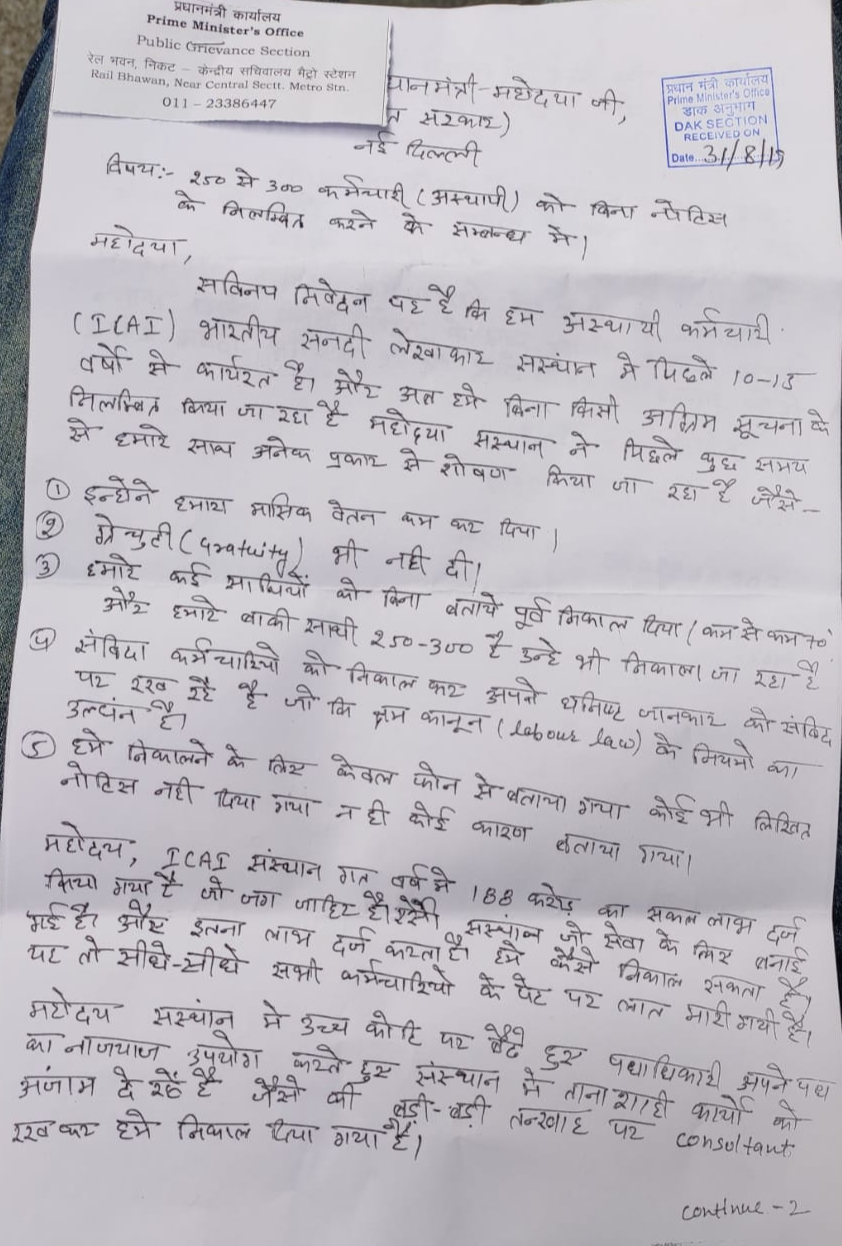 प्रधानमंत्री कार्यालय
Prime Minister's Office
Public Grievance Section
रेल भवन, निकट – केन्द्रीय सचिवालय मैट्रो स्टेशन
Rail Bhawan, Near Central Sectt. Metro Stn.
011 – 23386447
प्रधान मंत्री कार्यालय
Prime Minister's Office
डाक अनुभाग
DAK SECTION
RECEIVED ON
Date... 31/8/19
धानमंत्री-महोदया जी,
त सरकार)
नई दिल्ली
विषय:- 250 से 300 कर्मचारी (अस्थायी) को बिना नोटिस
के निलम्बित करने के सम्बन्ध मे।
महोदया,
सविनय निवेदन यह है कि हम अस्थायी कर्मचारी
(ICAI) भारतीय सनदी लेखाकार सस्थान मे पिछले 10-15
वर्षो से कार्यरत है। और अत हमे बिना किसी अग्रिम सूचना के
निलम्बित किया जा रहा है महोदया सस्थान ने पिछले कुछ समय
से हमारे साथ अनेक प्रकार से शोषण किया जा रहा है जैसे-
① इन्होने हमारा मासिक वेतन कम कर दिया।
② ग्रेच्युटी (Gratuity) भी नही दी।
③ हमारे कई साथियों को बिना बताये पूर्व निकाल दिया (कम से कम 70
और हमारे बाकी साथी 250-300 है उन्हे भी निकाला जा रहा है
④ संविदा कर्मचारियो को निकाल कर अपने घनिष्ट जानकार को संविद
पर रख रहे है जो कि श्रम कानून (labour law) के नियमो का
उल्घंन है।
⑤ हमे निकालने के लिए केवल फोन से बताया गया कोई भी लिखित
नोटिस नही दिया गया न ही कोई कारण बताया गया।
महोदय, ICAI संस्थान गत वर्ष मे 188 करोड़ का सकल लाभ दर्ज
किया गया है जो जग जाहिर है। ऐसी सस्थान जो सेवा के लिए बनाई
गई है। और इतना लाभ दर्ज करता है। हमे कैसे निकाल सकता है।
यह तो सीधे-सीधे सभी कर्मचारियो के पेट पर लात मारी गयी है।
महोदय सस्थान मे उच्च कोटि पर बैठे हुए पदाधिकारी अपने पद
का नाजयाज उपयोग करते हुए संस्थान मे ताना शाही कार्यो को
अंजाम दे रहें है जैसे की बड़ी-बड़ी तन्खाह पर consultant
रख कर हमे निकाल दिया गया है।
continue - 2